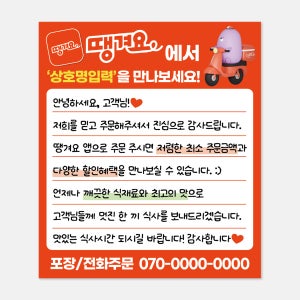 땡겨요
땡겨요에서
'상호명입력'을 만나보세요!
안녕하세요, 고객님!❤
저희를 믿고 주문해주셔서 진심으로 감사드립니다.
땡겨요 앱으로 주문 주시면 저렴한 최소 주문금액과
다양한 할인혜택을 만나보실 수 있습니다. :)
언제나 깨끗한 식재료와 최고의 맛으로
고객님들께 멋진 한 끼 식사를 보내드리겠습니다.
맛있는 식사시간 되시길 바랍니다! 감사합니다❤
포장/전화주문 070-0000-0000